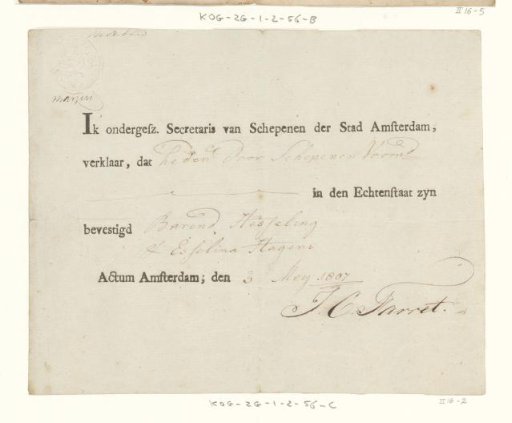 KOG-ZG-1-2-56-B
II 16-5
Ik ondergesz. Secretaris van Schepenen der Stad Amsterdam,
verklaar, dat heden door Schepenen
in den Echtenstaat zyn
bevestigd Barend Hasseling
& Esselina Hagens
Actum Amsterdam; den 3 Mey 1807
J. C. Farret.
KOG-ZG-1-2-56-C
II 16-2